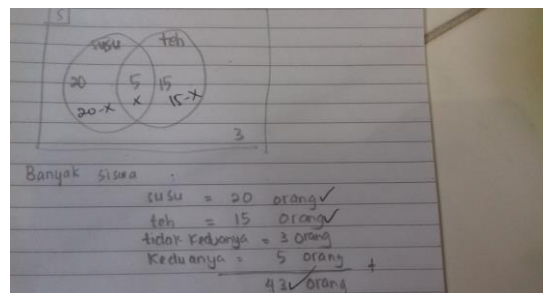 S
susu teh
20 5 15
20-x x 15-x
3
Banyak siswa :
susu = 20 orang✓
teh = 15 orang✓
tidak keduanya = 3 orang
Keduanya = 5 orang +
43✓ orang